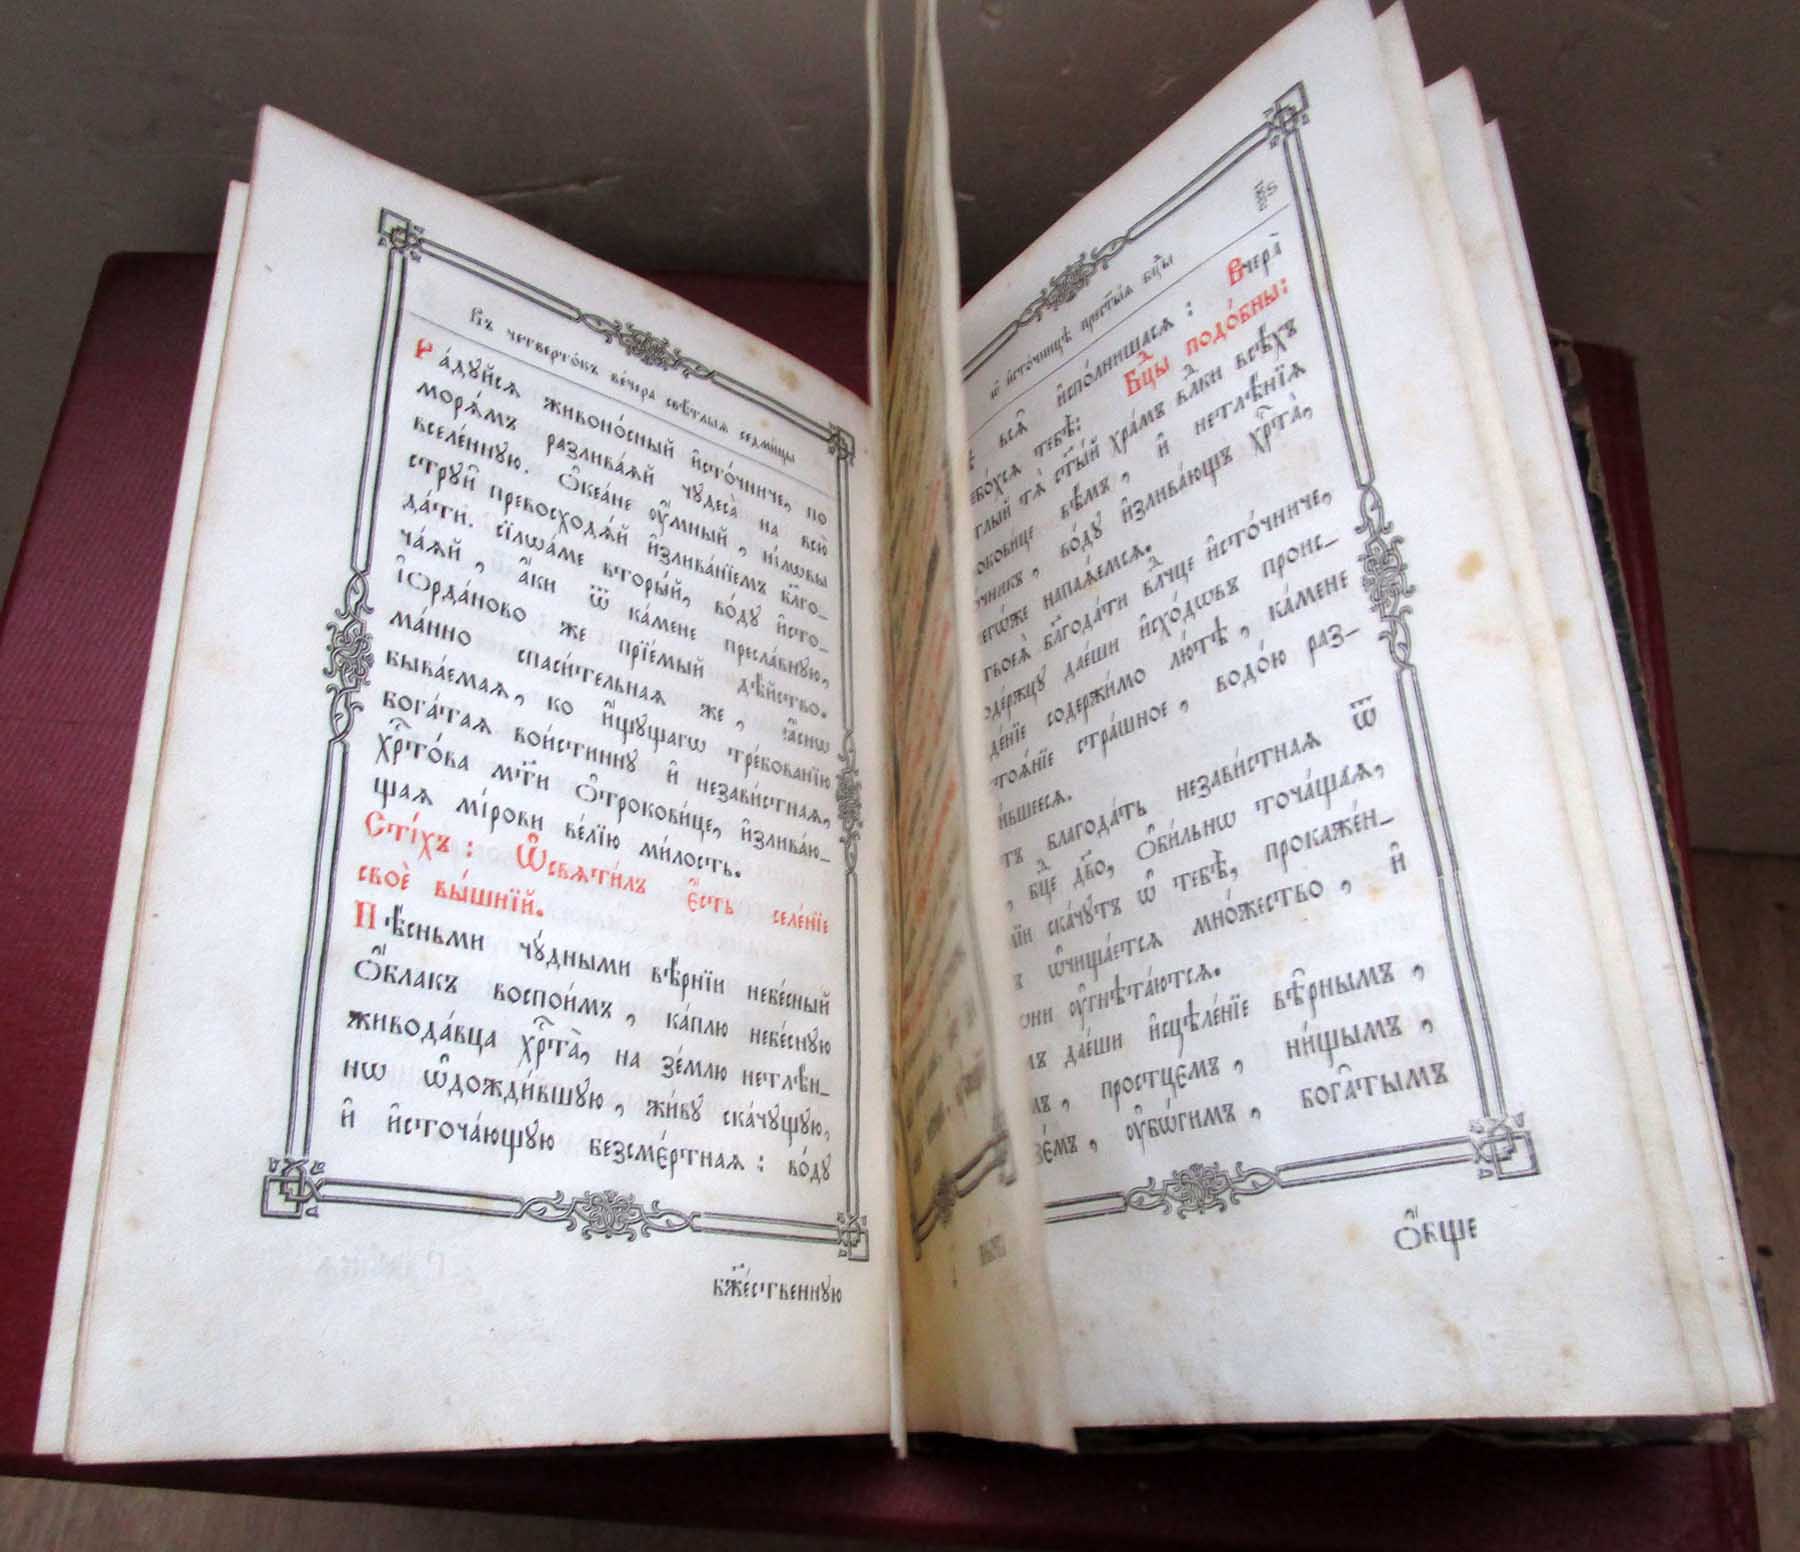 Въ четверто́къ ве́чера свѣ́тлыѧ седми́цы
Ра́дꙋйсѧ живоно́сный и҆сто́чниче, по
морѧ́мъ разлива́ѧй чꙋдеса̀ на всю̀
вселе́ннꙋю. Ѻ҆кеа́не ᲂу҆́мный, ні́лѡвы
стрꙋи̑ превосходѧ́й и҆злива́нїемъ бл҃го-
да́ти. сїлѡа́ме вторы́й, во́дꙋ и҆сто-
ча́ѧй, а҆́ки ѿ ка́мене пресла́внꙋю,
і҆ѻрда́ново же прїе́мый дѣ́йство.
ма́нно спаси́тельнаѧ же, ꙗ҆́снѡ
быва́емаѧ, ко и҆́щꙋщагѡ тре́бованїю
бога́таѧ вои́стиннꙋ и҆ незави́стнаѧ,
хрⷭ҇то́ва мт҃и ѻ҆трокови́це, и҆злива́ю-
щаѧ мі́рови ве́лїю ми́лость.
Сті́хъ: Ѡ҆свѧти́лъ є҆́сть селе́нїе
своѐ вы́шнїй.
Пѣ́сньми чꙋ́дными вѣ́рнїи небе́сный
Ѻ҆́блакъ воспои́мъ, ка́плю небе́снꙋю
живода́вца хрⷭ҇та̀, на зе́млю нетлѣ́н-
нѡ ѡ҆дожди́вшꙋю, жи́вꙋ ска́чꙋщꙋю,
и҆ и҆сточа́ющꙋю безсме́ртнаѧ: во́дꙋ
бж҃е́ственнꙋю
ѡ҆ и҆сто́чницѣ прест҃ы́ѧ бцⷣы
всѧ̑ и҆спо́лнишасѧ: Вчера̀
тебѣ̀: Бцⷣы подо́бны:
тѧ̀ ст҃ы́й хра́мъ влⷣки всѣ́хъ
вѣ́мъ, и҆ нетлѣ́нїѧ
во́дꙋ и҆злива́ющъ хрⷭ҇та̀,
напаѧ́емсѧ.
твоеѧ̀ бл҃года́ти влⷣчце и҆сто́чниче,
дае́ши и҆схо́дѡвъ проис-
содержи́мо лю́тѣ, ка́мене
стра́шное, водо́ю раз-
благода́ть незави́стнаѧ ѿ
бцⷣе дв҃о, ѻ҆би́льнѡ точа́щаѧ,
ска́чꙋтъ ѡ҆ тебѣ̀, прокаже́н-
ѡ҆чища́етсѧ мно́жество, и҆
ᲂу҆гнѣта́ютсѧ.
дае́ши и҆сцѣле́нїе вѣ̑рнымъ,
простце́мъ, ни́щымъ,
ᲂу҆бѡ́гимъ, бога̑тымъ
Ѻ҆́бще